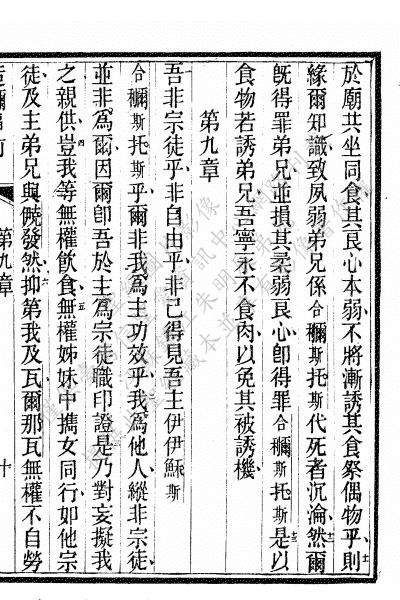 於廟共坐同食其良心本弱不將漸誘其食祭偶物乎則
緣爾知識致夙弱弟兄係合穪斯托斯代死者沉淪然爾
旣得罪弟兄並損其柔弱良心卽得罪合穪斯托斯是以
食物若誘弟兄吾寧永不食肉以免其被誘機
第九章
吾非宗徒乎非自由乎非己得見吾主伊伊穌斯
合穪斯托斯乎爾非我為主功效乎我為他人縱非宗徒
並非為爾因爾卽吾於主為宗徒職印證是乃對妄擬我
之親供豈我等無權飲食無權姊妹中擕女同行如他宗
徒及主弟兄與暁發然抑第我及瓦爾那瓦無權不自勞
第九章
十